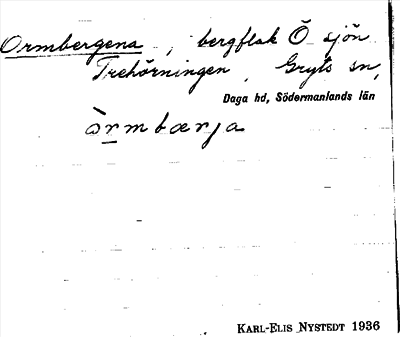 Ormbergena, bergflak Ö sjön
Trehörningen, Gryts sn,
Daga hd, Södermanlands län
òrmbærja
KARL-ELIS NYSTEDT 1936